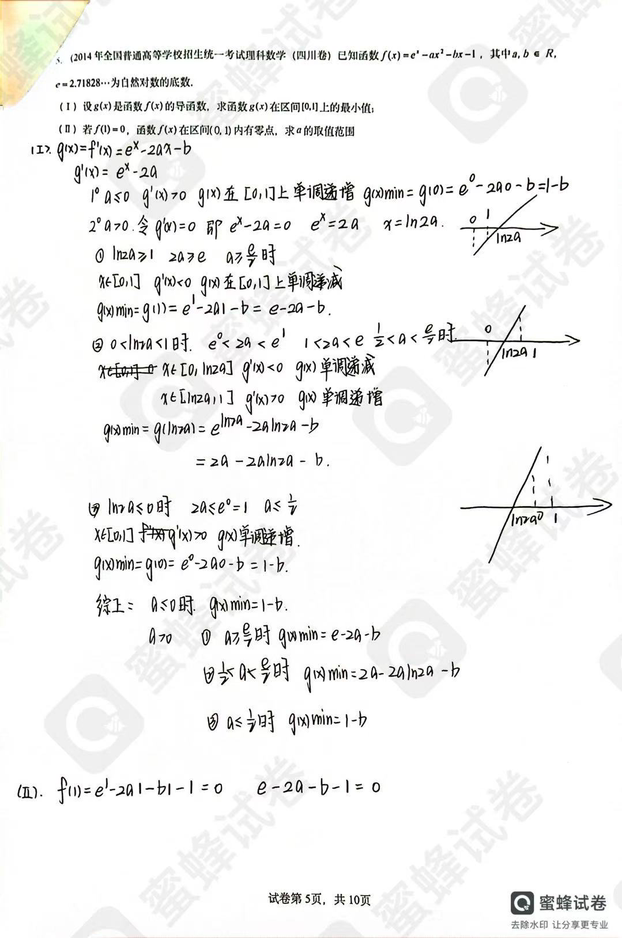 5. (2014年全国普通高等学校招生统一考试理科数学（四川卷）已知函数f(x)=eˣ-ax²-bx-1，其中a,b∈R，
e=2.71828…为自然对数的底数.
(Ⅰ) 设g(x)是函数f(x)的导函数，求函数g(x)在区间[0,1]上的最小值;
(Ⅱ) 若f(1)=0，函数f(x)在区间(0,1)内有零点，求a的取值范围
(Ⅰ). g(x)=f'(x)=eˣ-2ax-b
g'(x)=eˣ-2a
1° a≤0 g'(x)>0 g(x)在[0,1]上单调递增 g(x)min=g(0)=e⁰-2a0-b=1-b
2° a>0.令g'(x)=0 即 eˣ-2a=0 eˣ=2a x=ln2a.
0 1
ln2a
① ln2a≥1 2a≥e a≥e/2时
x∈[0,1] g'(x)<0 g(x)在[0,1]上单调递减
g(x)min=g(1)=e¹-2a1-b=e-2a-b.
② 0<ln2a<1时. e⁰<2a<e¹ 1<2a<e 1/2<a<e/2时.
0
ln2a 1
x∈[0,ln2a] g'(x)<0 g(x)单调递减
x∈[ln2a,1] g'(x)>0 g(x)单调递增
g(x)min=g(ln2a)=e^ln2a-2aln2a-b
=2a-2aln2a-b.
③ ln2a≤0时 2a≤e⁰=1 a≤1/2
ln2a 0 1
x∈[0,1] g'(x)>0 g(x)单调递增.
g(x)min=g(0)=e⁰-2a0-b=1-b.
综上: a≤0时. g(x)min=1-b.
a>0 ① a≥e/2时 g(x)min=e-2a-b
② 1/2<a<e/2时 g(x)min=2a-2aln2a-b
③ a≤1/2时 g(x)min=1-b
(Ⅱ). f(1)=e¹-2a1-b1-1=0 e-2a-b-1=0
试卷第5页，共10页
蜜蜂试卷
去除水印 让分享更专业